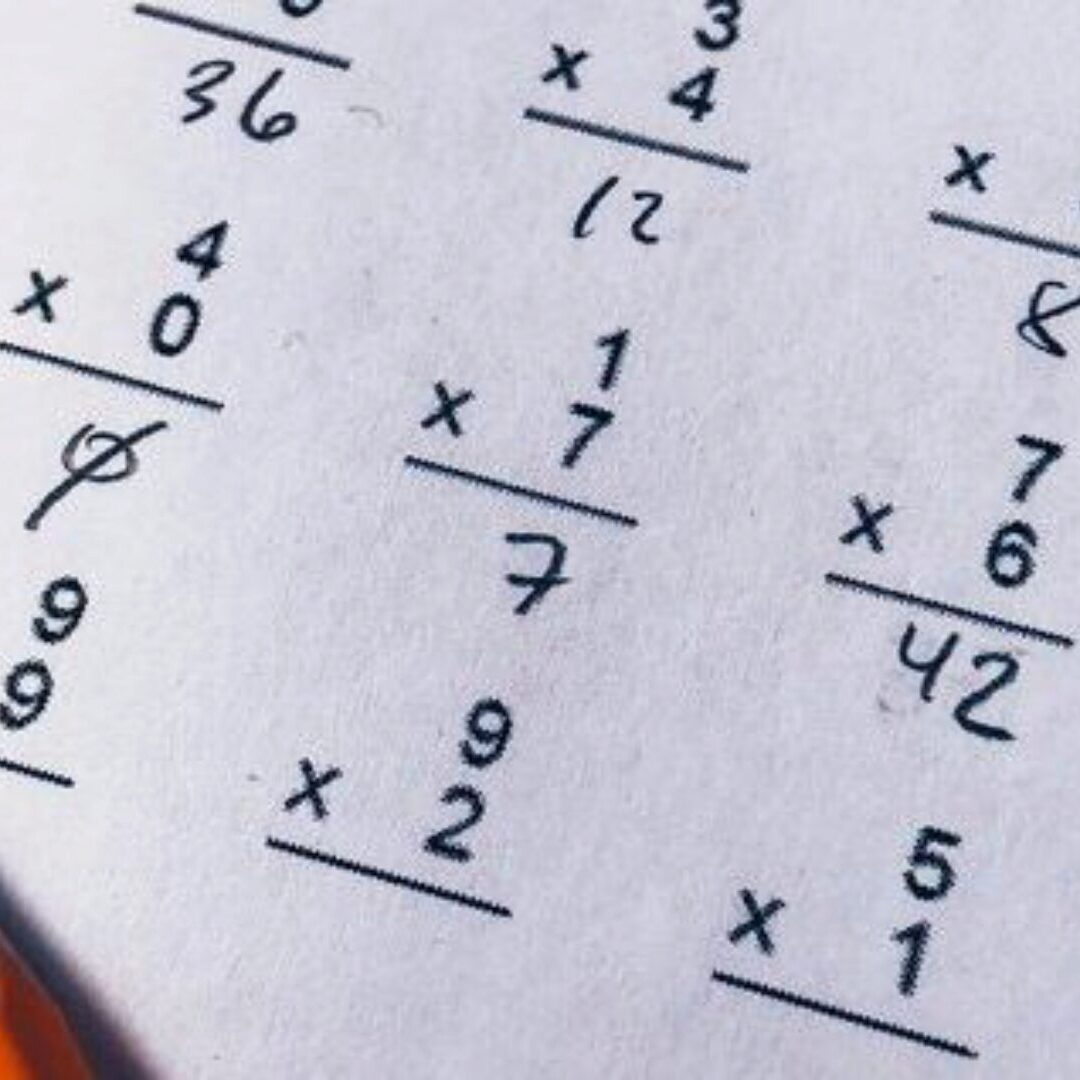 36
3
x 4
12
x
8
4
x 0
0
1
x 7
7
7
x 6
42
9
9
9
x 2
5
x 1